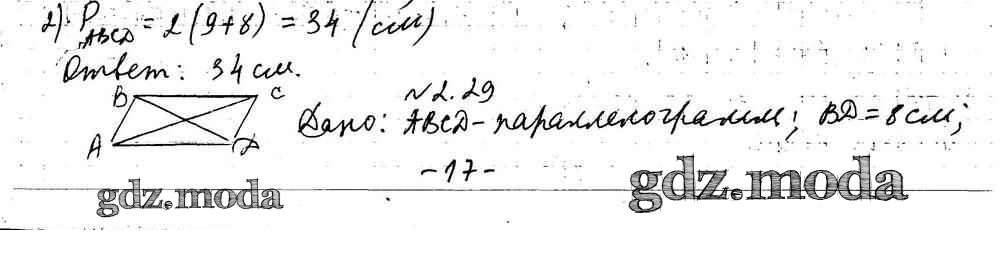 2) P ABCD = 2 (9+8) = 34 (см)
Ответ: 34 см.
№2.29
B C
A D
Дано: ABCD - параллелограмм; BD = 8 см;
-17-
gdz.moda gdz.moda